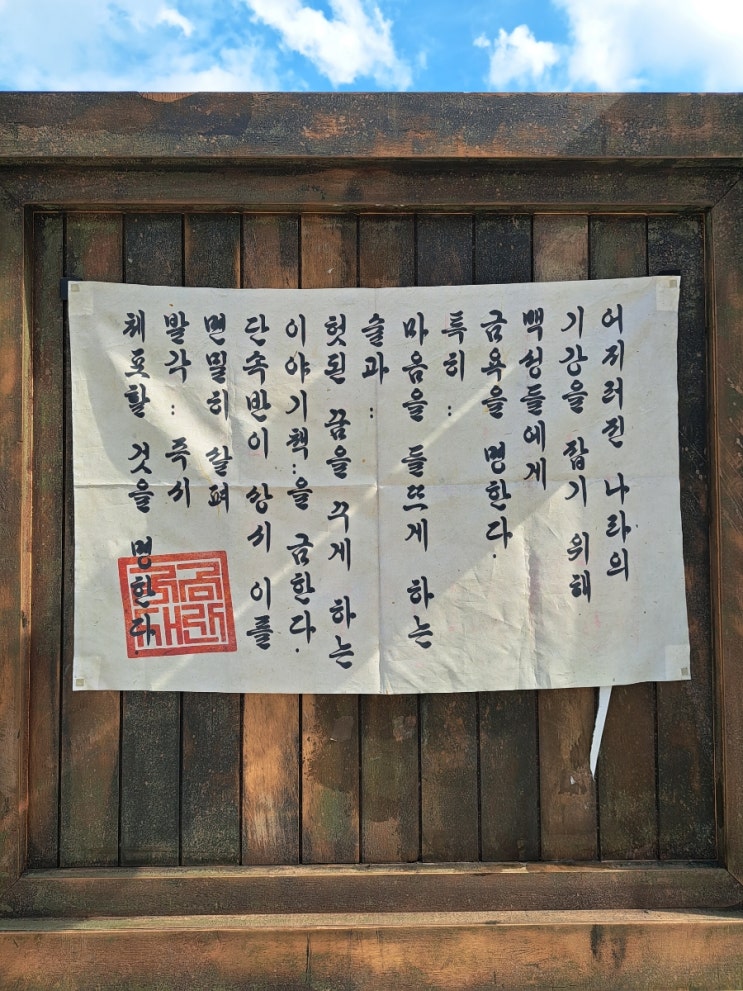 어지러진 나라의
기강을 잡기 위해
백성들에게
금욕을 명한다.
특히 :
마음을 들뜨게 하는
술과 :
헛된 꿈을 꾸게 하는
이야기책 : 을 금한다.
단속반이 상시 이를
면밀히 살펴
발각 : 즉시
체포할 것을 명한다.